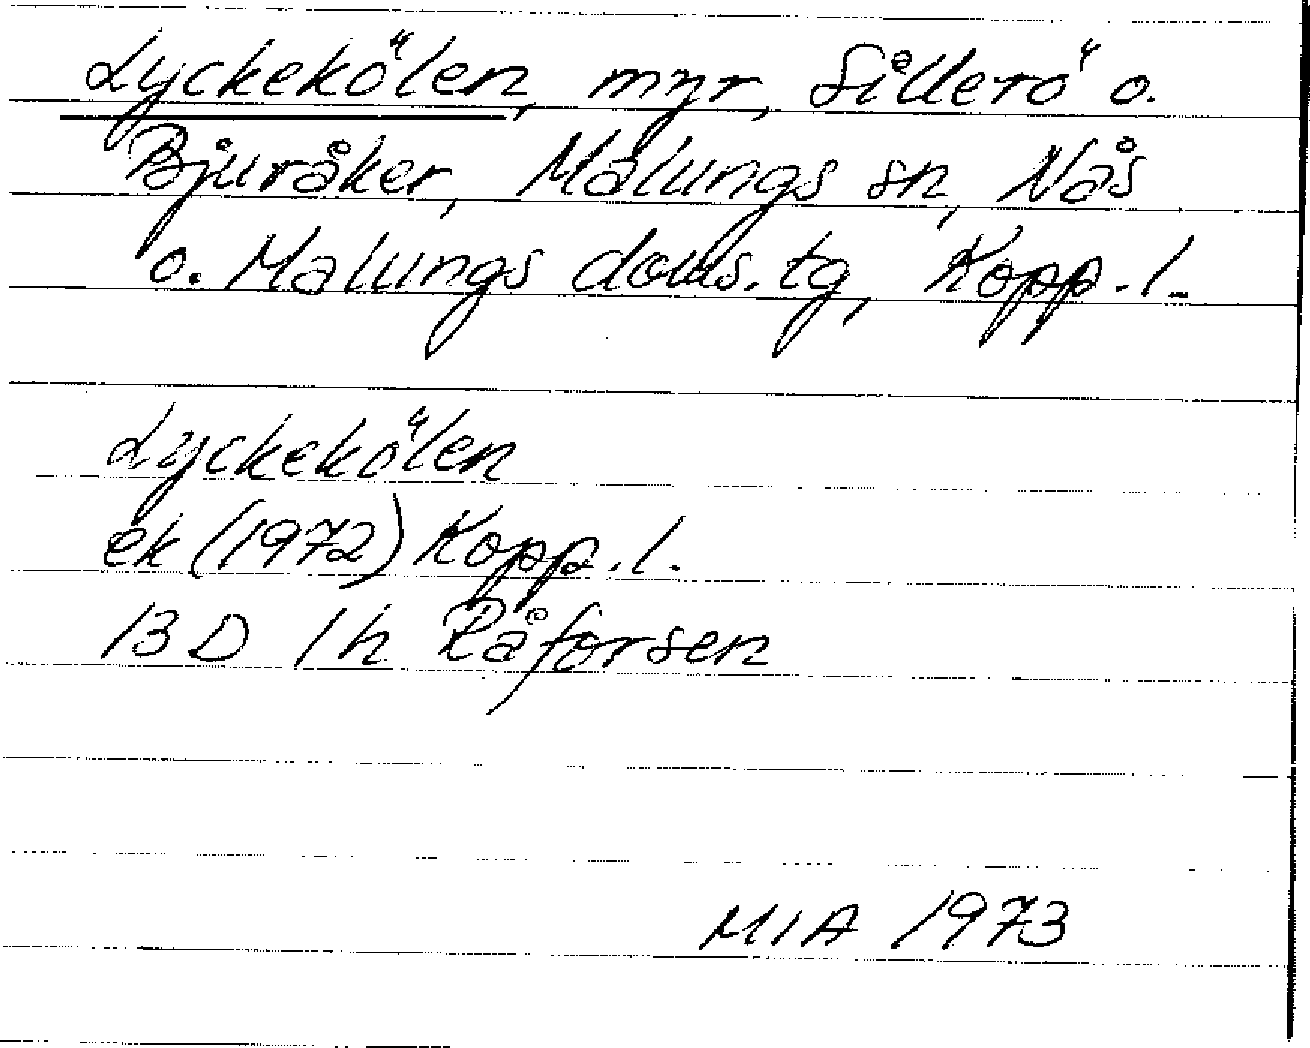 Lyckekölen, myr, Sillerö o.
Bjuråker, Malungs sn, Nås
o. Malungs doms.tg, Kopp.l.
Lyckekölen
ek (1972) Kopp.l.
13 D 1h Råforsen
MIA 1973